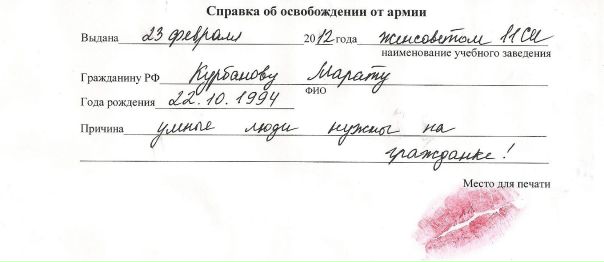 Справка об освобождении от армии
Выдана 23 февраля 2012 года женсоветом 11СИ
наименование учебного заведения
Гражданину РФ Курбанову Марату
ФИО
Года рождения 22.10.1994
Причина умные люди нужны на
гражданке!
Место для печати